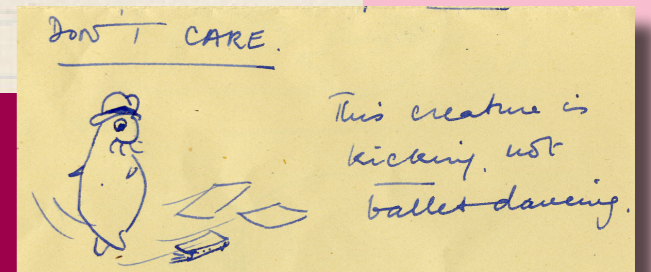 DON'T CARE.
This creature is
kicking, not
ballet dancing.